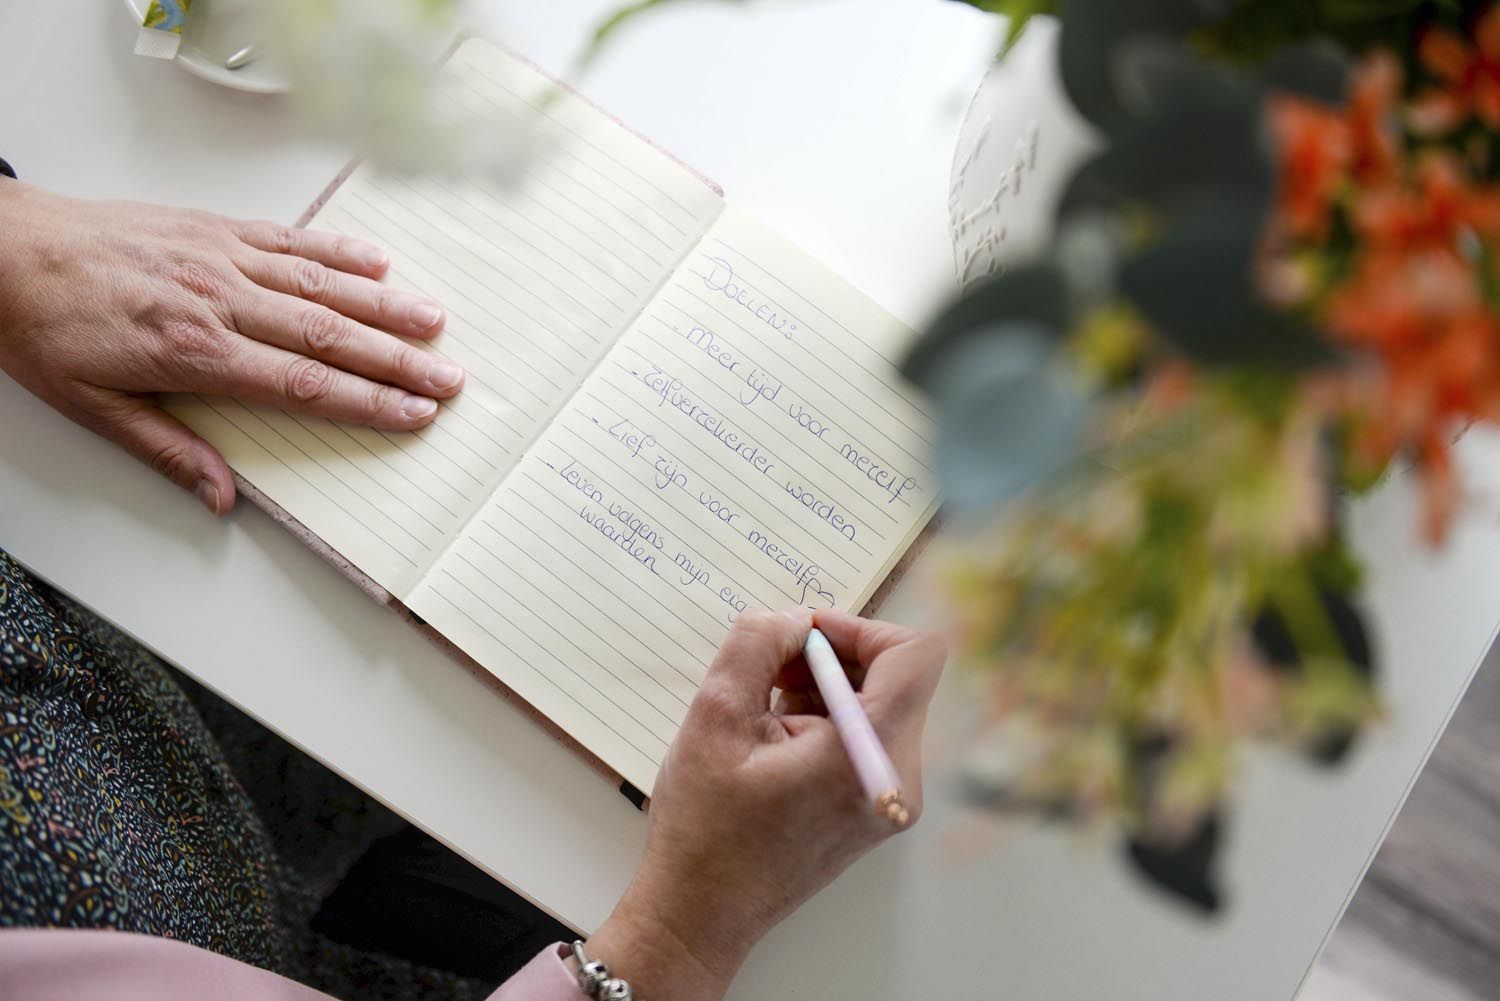 Doelen:
- Meer tijd voor mezelf
- Zelfverzekerder worden
- Lief zijn voor mezelf
- Leven volgens mijn
waarden